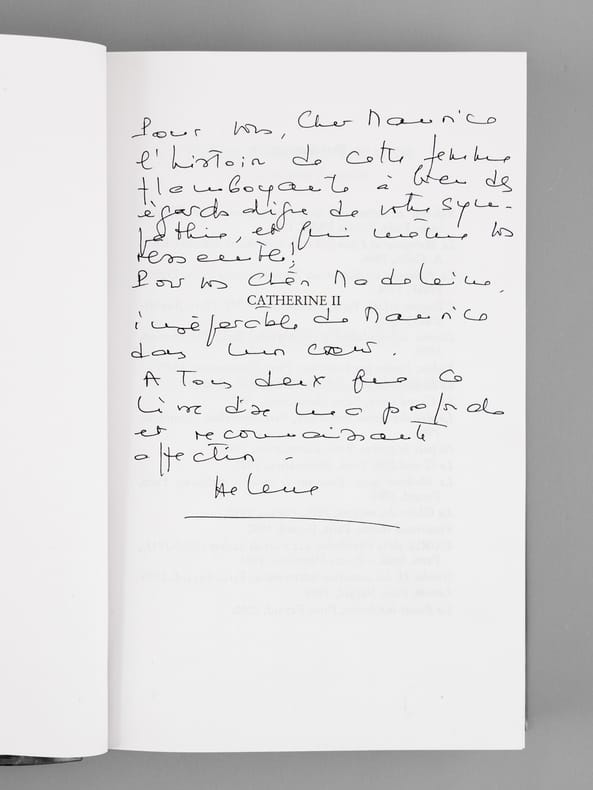 Pour vous, Cher Maurice
l'histoire de cette femme
flamboyante à bien des
égards digne de votre sym-
pathie, et qui même vous
ressemble!
Pour vous Chère Madeleine,
CATHERINE II
inséparable de Maurice
dans mon coeur.
A Tous deux que ce
livre dise ma profonde
et reconnaissante
affection -
Helene